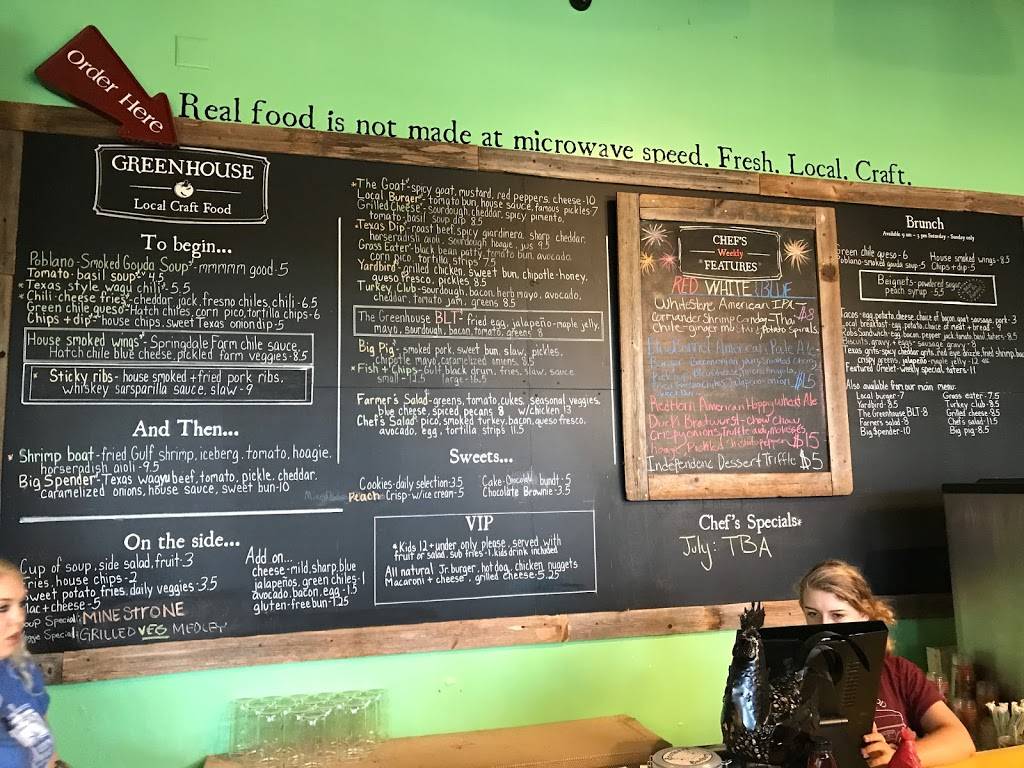 Order Here
Real food is not made at microwave speed. Fresh. Local. Craft.
GREENHOUSE
Local Craft Food
To begin...
Poblano-Smoked Gouda Soup-mmmmm good-5
Tomato-basil soup 4.5
Texas style wagu chili-5.5
Chili-cheese fries-cheddar jack, fresno chiles, chili-6.5
Green chile queso-Hatch chiles, corn pico, tortilla chips-6
Chips + dip-house chips, sweet Texas onion dip-5
House smoked wings-Springdale Farm chile sauce,
Hatch chile blue cheese, pickled farm veggies-8.5
Sticky ribs-house smoked + fried pork ribs,
whiskey sarsparilla sauce, slaw-9
And Then...
Shrimp boat-fried Gulf shrimp, iceberg, tomato, hoagie,
horseradish aioli-9.5
Big Spender-Texas wagyu beef, tomato, pickle, cheddar,
caramelized onions, house sauce, sweet bun-10
On the side...
Cup of soup, side salad, fruit-3
fries, house chips-2
Sweet potato fries, daily veggies-3.5
Mac+cheese-5
Soup Special: MINESTRONE
Special: GRILLED VEG MEDLEY
Add on...
cheese-mild, sharp, blue
jalapeños, green chiles-1
avocado, bacon, egg-1.5
gluten-free bun-1.25
The Goat-spicy goat, mustard, red peppers, cheese-10
Local Burger-tomato bun, house sauce, famous pickles 7
Grilled Cheese-sourdough, cheddar, spicy pimento,
tomato-basil soup dip 8.5
Texas Dip-roast beef, spicy giardinera, sharp cheddar,
horseradish aioli, sourdough hoagie, jus 9.5
Grass Eater-black bean patty, tomato bun, avocado,
corn pico, tortilla strips 7.5
Yardbird-grilled chicken, sweet bun, chipotle-honey,
queso fresco, pickles 8.5
Turkey Club-sourdough, bacon, herb mayo, avocado,
cheddar, tomato jam, greens 8.5
The Greenhouse BLT-fried egg, jalapeño-maple jelly,
mayo, sourdough, bacon, tomato, greens 8
Big Pig-smoked pork, sweet bun, slaw, pickles,
chipotle mayo, caramelized onions, 8.5
Fish + Chips-Gulf black drum, fries, slaw, sauce
small-12.5 large-16.5
Farmer's Salad-greens, tomato, cukes, seasonal veggies,
blue cheese, spiced pecans 8 w/chicken 13
Chef's Salad-pico, smoked turkey, bacon, queso fresco,
avocado, egg, tortilla strips 11.5
Sweets...
Cookies-daily selection-3.5
Peach Crisp-w/ice cream-5
Cake-Chocolate bundt-5
Chocolate Brownie-3.5
VIP
Kids 12+under only please, served with
fruit or salad, sub fries-1, kids drink included
All natural Jr. burger, hotdog, chicken nuggets
Macaroni + cheese, grilled cheese-5.25
CHEF'S
Weekly
FEATURES
RED WHITE BLUE
Whitestone American IPA
Corryander Shrimp Candy-Thai $8
Chile-ginger mo Stir, Potato Spirals
American Pale Ale
$15
RedHorn American Hoppy Wheat Ale
Bratwurst-chow chow,
Crispy onions, Truffle
$15
Independenc Dessert Triffle $5
Chef's Specials
July: TBA
Brunch
Available 9 am - 3 pm Saturday - Sunday only
Green chile queso-6
Poblano-smoked gouda soup-5
House smoked wings-8.5
Chips + dip-5
Beignets-powdered sugar,
peach syrup 5.5
Tacos-egg, potato, cheese, choice of bacon, goat sausage, pork-3
Local breakfast-egg, potato, choice of meat + bread-9
Robs Sandwich-egg, bacon, pepper jack, tomato, basil, taters-8.5
Biscuits, gravy + eggs-sausage gravy-8
Texas grits-spicy cheddar grits, red eye drizzle, fried shrimp,
crispy greens, jalapeño-maple jelly-12
Featured Omelet-weekly special, taters-11
Also available from our main menu:
Local burger-7
Yardbird-8.5
The Greenhouse BLT-8
Farmers salad-8
Big Spender-10
Grass eater-7.5
Turkey club-8.5
Grilled cheese-8.5
Chef's salad-11.5
Big pig-8.5